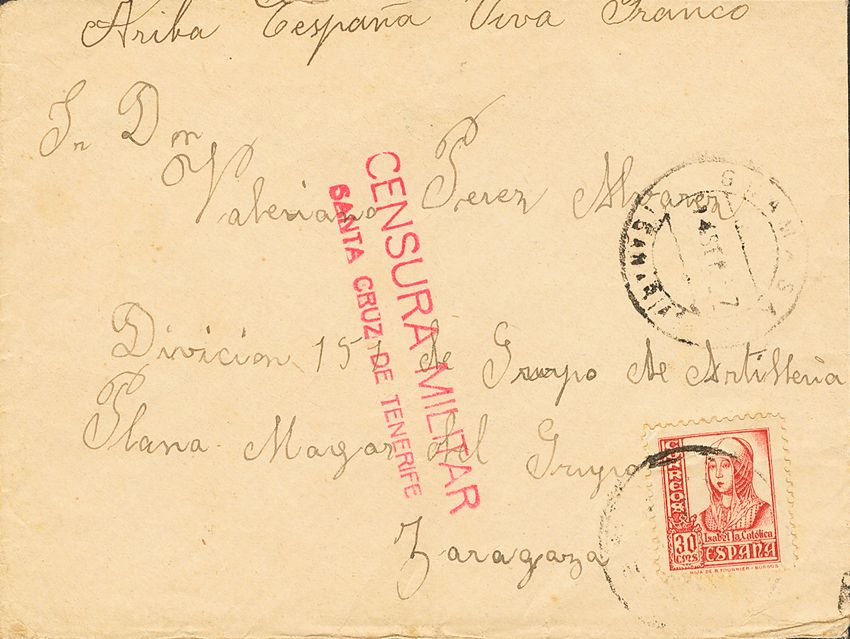 Ariba Eespaña Viva Franco
Sr Don
Valeriano Perez Alvarez
CENSURA MILITAR
SANTA CRUZ DE TENERIFE
Divicion 151 de Grupo de Artilleria
Plana Magor del Grupo
Zaragaza
CORREOS
30 CMS
Isabel la Católica
ESPAÑA
HIJA DE B. FOURNIER - BURGOS